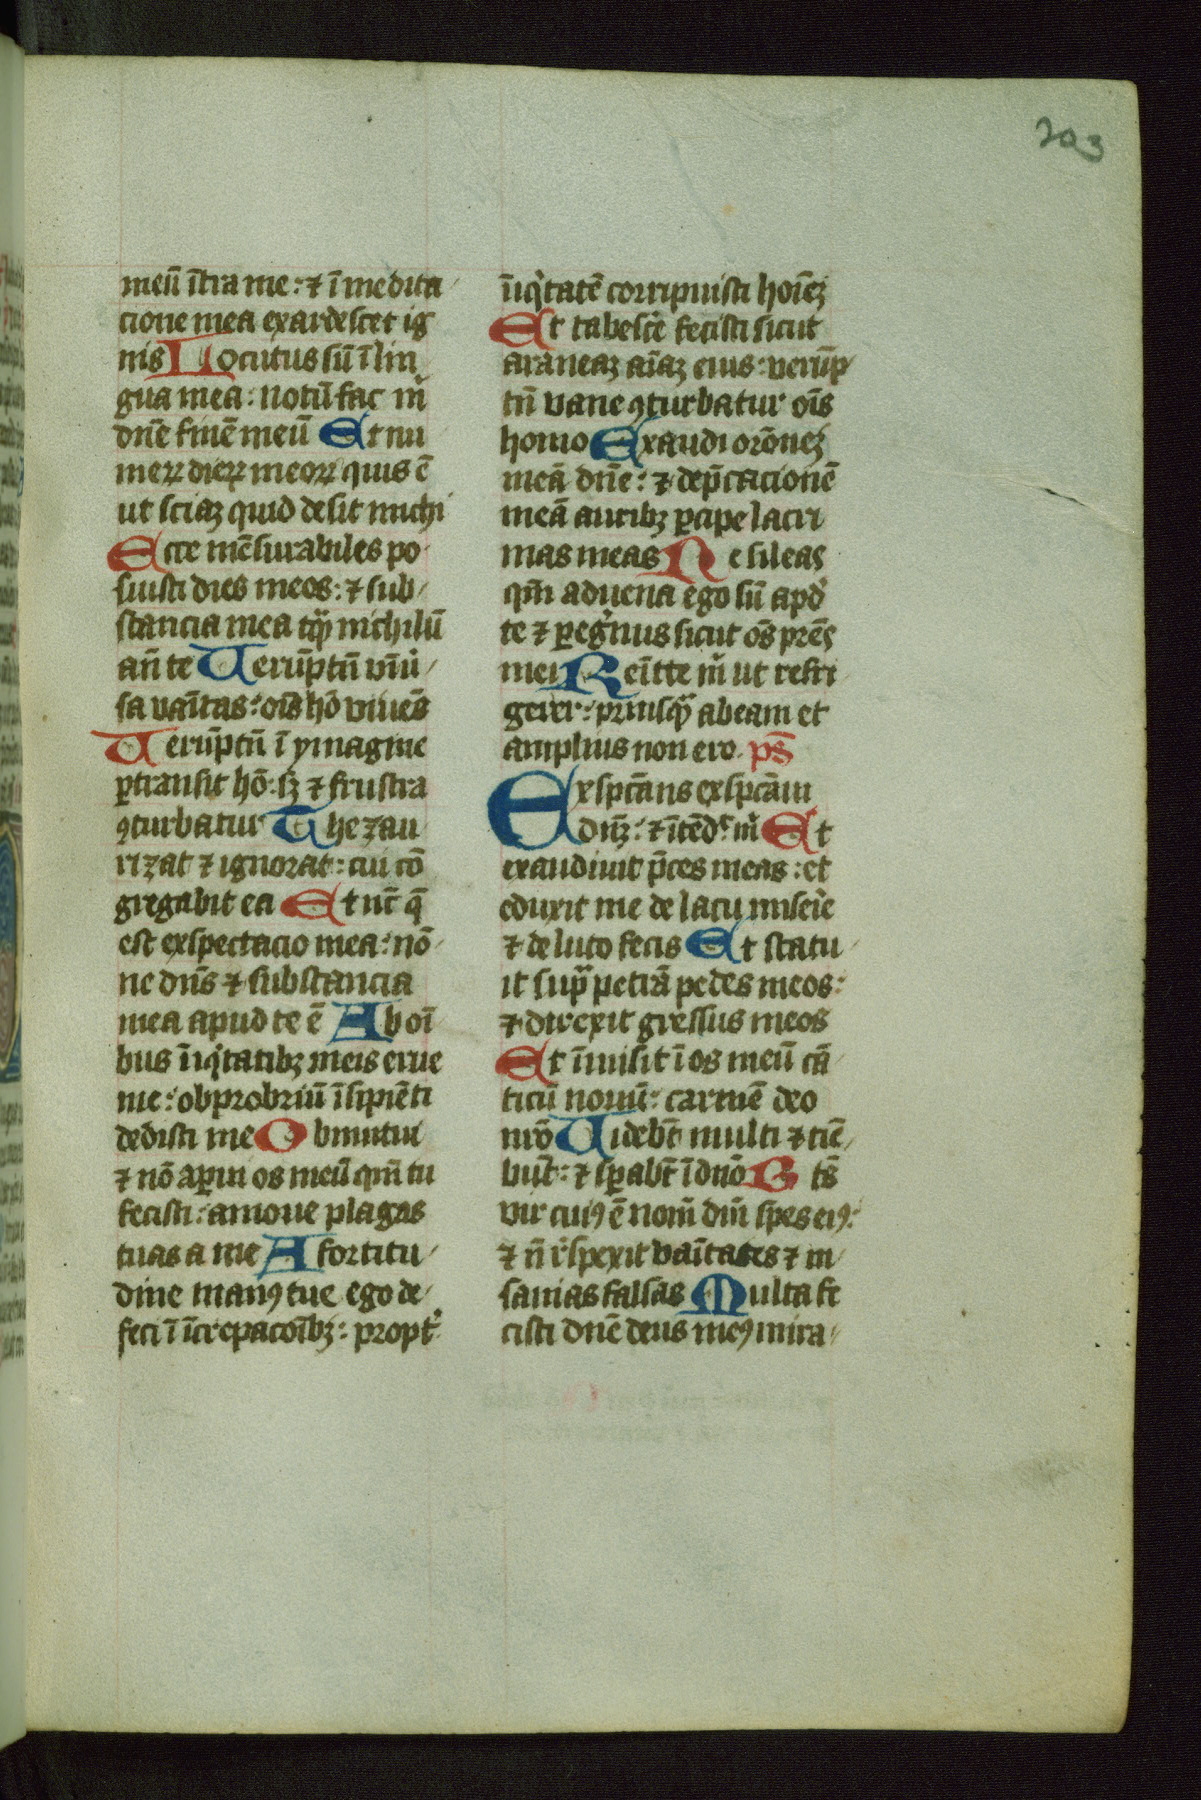 203
meū ītra me: ⁊ ī medita
cione mea exardescet ig
nis Locutus sū ī lin
gua mea: notū fac m̄
dn̄e finē meū Et nu
meꝝ dieꝝ meoꝝ quis ē
ut sciaꝫ quid desit michi
Ecce mēsurabiles po
suisti dies meos: ⁊ sub
stancia mea tqᷓ nichilū
an̄ te Uerūptn̄ vniu
sa vaītas: oīs hō viuēs
Uerūptn̄ ī ymagine
ꝑtransit hō: sꝫ ⁊ frustra
ꝯturbatur Thezau
rizat ⁊ ignorat: cui cō
gregabit ea Et nūc q̄
est exspectacio mea: nō
ne dn̄s ⁊ substancia
mea apud te ē Ab oī
bus īiqͥtatibꝫ meis erue
me: obprobriū īsipiēti
dedisti me Obmutui
⁊ nō aꝑui os meū qm̄ tu
fecisti: amoue plagas
tuas a me A fortitu
dine manꝰ tue ego de
feci ī īcrepacoībꝫ: propt̉
īiqͥtatē corripuisti hoīeꝫ
Et tabescē fecisti sicut
araneaꝫ aīaꝫ eius: verūp
tn̄ vane ꝯturbatur oīs
homo Exaudi orōneꝫ
meā dn̄e: ⁊ dep̄cacionē
meā auribꝫ ꝑcipe lacri
mas meas Ne sileas
qm̄ aduena ego sū apd̉
te ⁊ ꝑegͥnus sicut oēs pr̄ēs
mei Remitte m̄ ut refri
gerer: priusqᷓ abeam et
amplius non ero. ps̄
Exspcāns exspcāui
dn̄ꝫ: ⁊ ītēdͭ m̄ Et
exaudiuit p̄ces meas: et
eduxit me de lacu miserīe
⁊ de luto fecis Et statu
it supᷓ petrā pedes meos:
⁊ direxit gressus meos
Et īmisit ī os meū cā
ticū nouū: carmē deo
nr̄o Uidebt̄ multi ⁊ tiē
būt: ⁊ sꝑabt̄ ī dn̄o Btꝰ
vir cuiꝰ ē nom̄ dn̄i spes eiꝰ:
⁊ n̄ r̉spexit vaītates ⁊ in
sanias falsas Multa fe
cisti dn̄e deus meꝰ mira